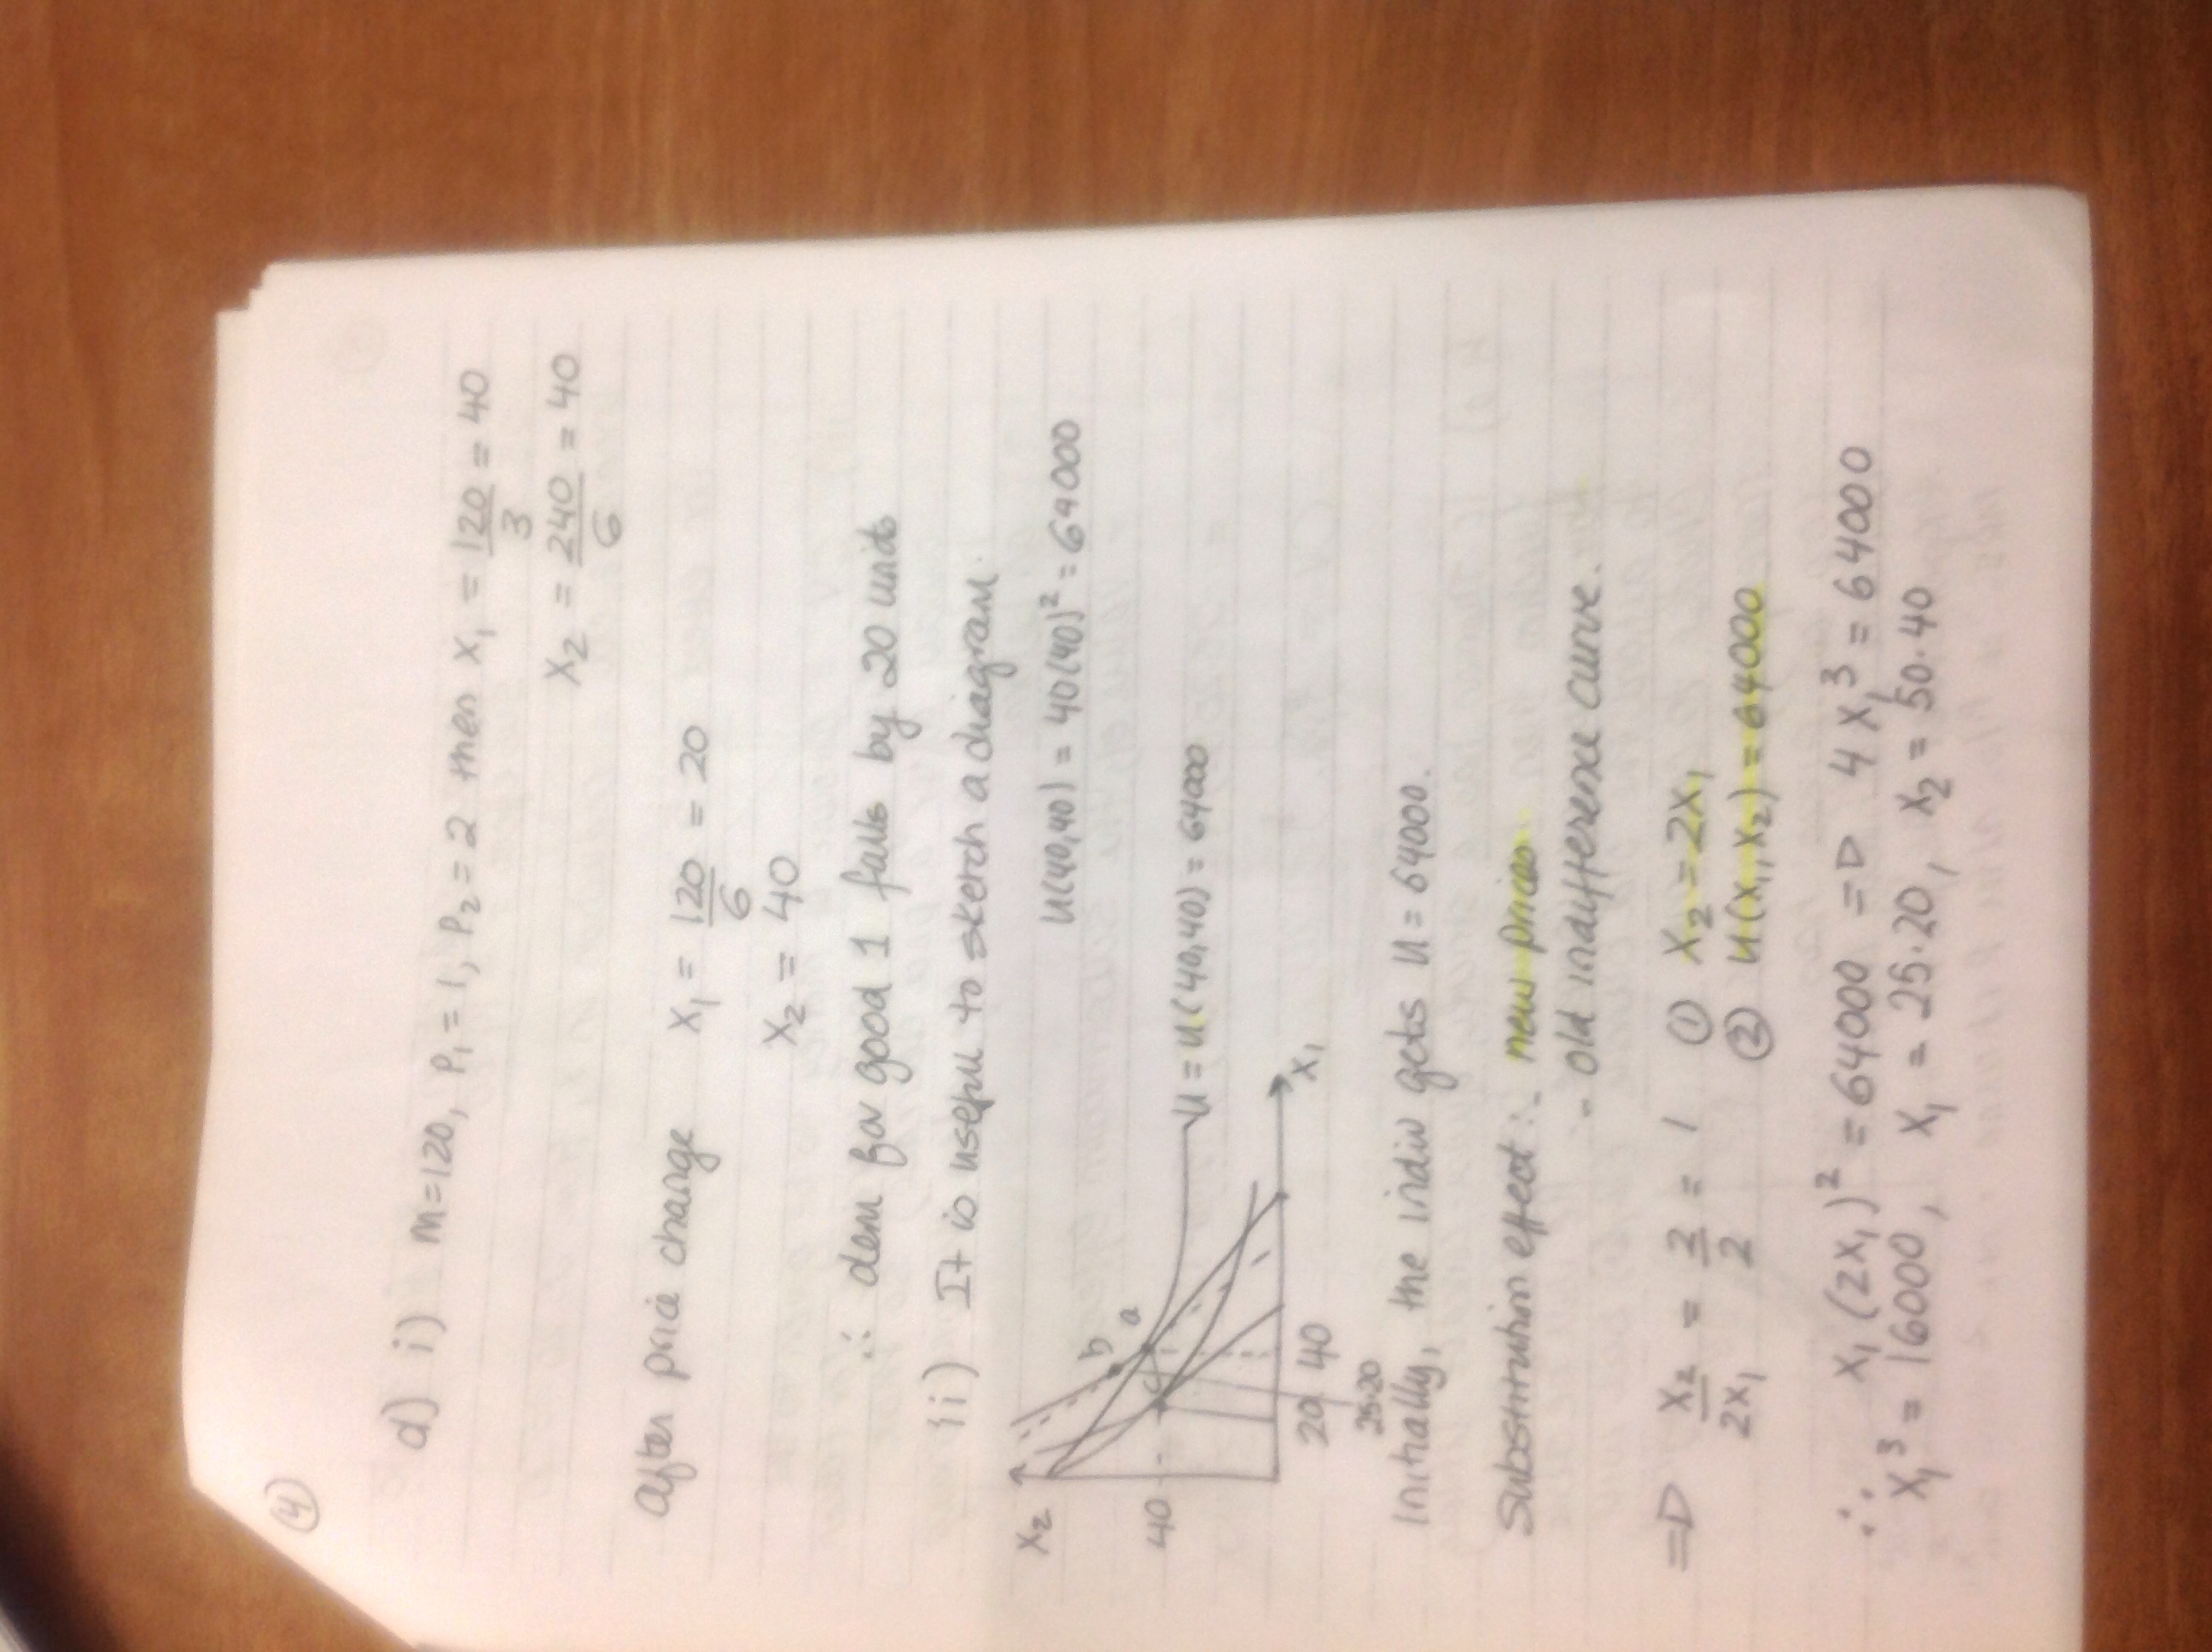 ④
d) i) m=120, P₁=1, P₂=2 then x₁ = 120/3 = 40
x₂ = 240/6 = 40
after price change x₁ = 120/6 = 20
x₂ = 40
∴ dem for good 1 falls by 20 units
ii) It is useful to sketch a diagram.
u(40,40) = 40(40)² = 64000
x₂
b
a
c
40
u = u(40,40) = 64000
x₁
20 40
25.20
Initially, the indiv gets u = 64000.
Substitution effect: - new prices
- old indifference curve.
⇒ x₂/2x₁ = 2/2 = 1 ① x₂ = 2x₁
② u(x₁,x₂) = 64000
∴ x₁(2x₁)² = 64000 ⇒ 4x₁³ = 64000
x₁³ = 16000, x₁ = 25.20, x₂ = 50.40